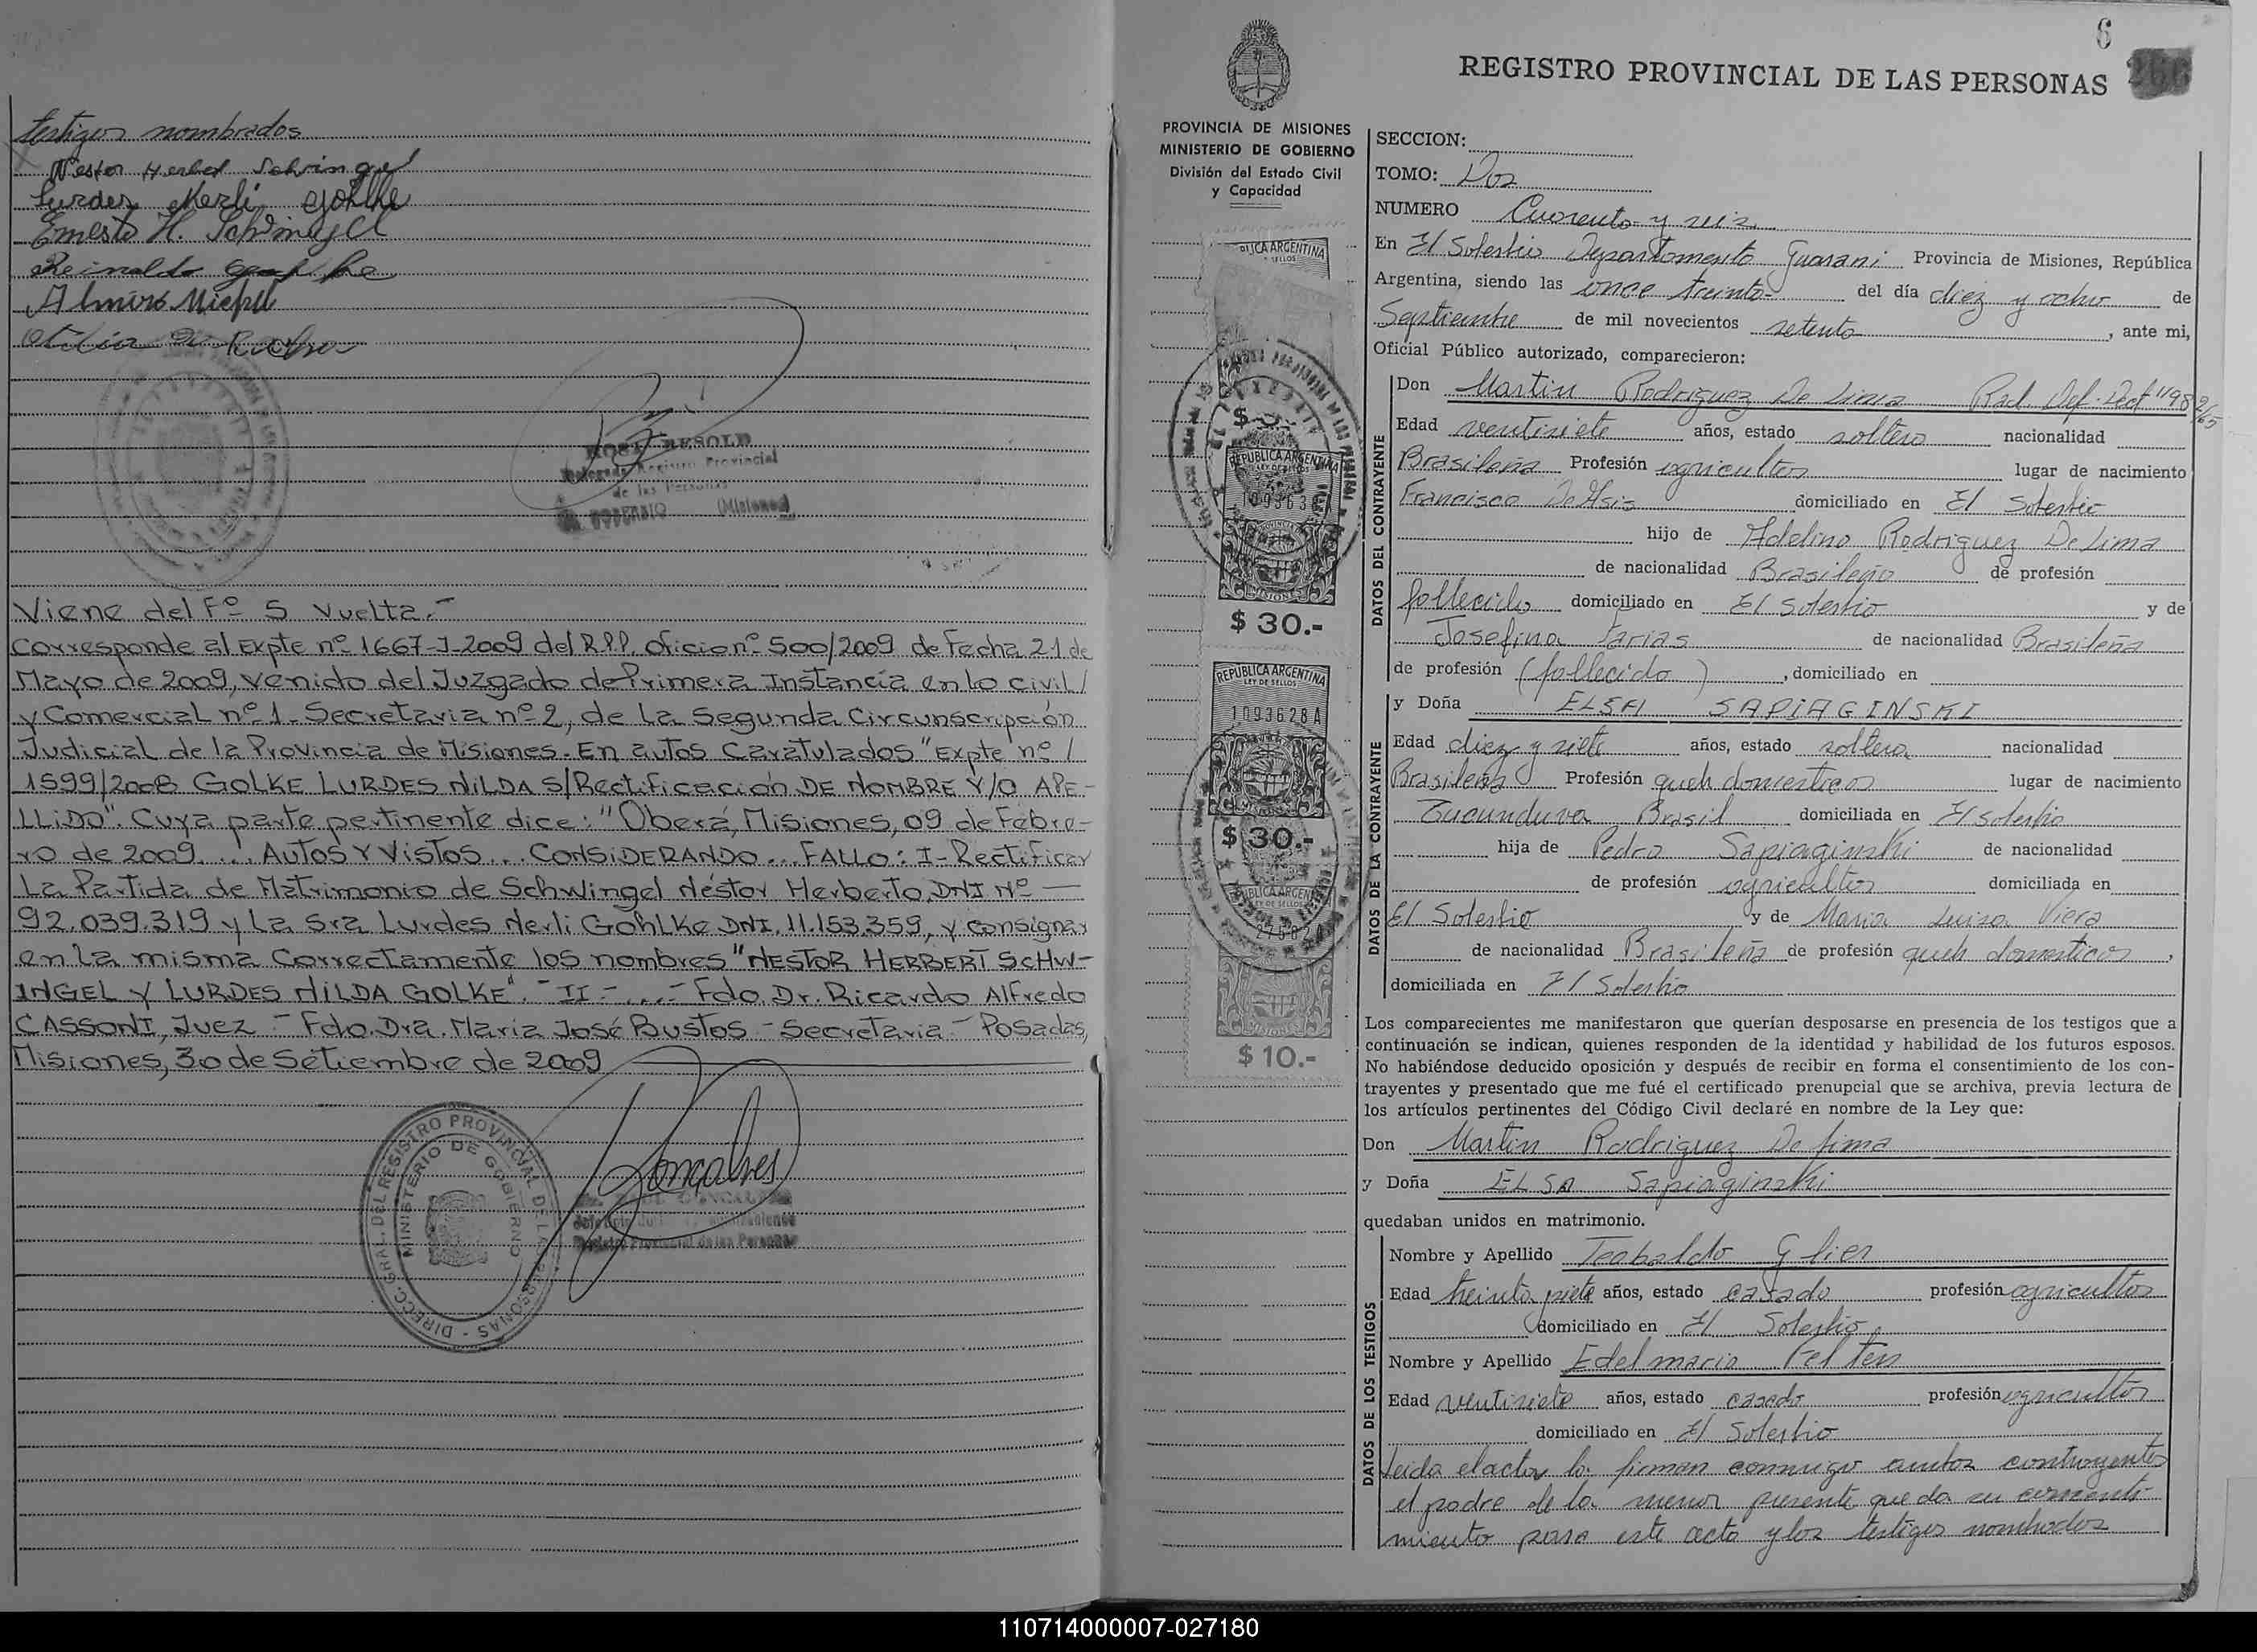 testigos nombrados
Nestor Herbet Schwingel
Lurdes Nerli Gohlke
Ernesto H. Schwingel
Reinaldo
Almiro Michel
Registro Provincial
de las Personas
(Misiones)
Viene del Fº 5 Vuelta.-
Corresponde al Expte nº 1667-J-2009 del R.P.P. oficio nº 500/2009 de Fecha 21 de
Mayo de 2009, venido del Juzgado de Primera Instancia en lo civil/
y Comercial nº 1 - Secretaria nº 2, de La Segunda Circunscripción
Judicial de la Provincia de Misiones. En autos Caratulados "Expte nº/
1599/2008 GOLKE LURDES NILDA S/Rectificación DE NOMBRE Y/O APE-
LLIDO". Cuya parte pertinente dice: "Oberá, Misiones, 09 de Febre-
ro de 2009. ... AUTOS Y VISTOS... CONSIDERANDO... FALLO: I- Rectificar
La Partida de Matrimonio de Schwingel Néstor Herberto, DNI Nº —
92.039.319 y La Sra Lurdes Nerli Gohlke DNI. 11.153.359, y consignar
en la misma Correctamente los nombres "NESTOR HERBERT SCHW-
INGEL Y LURDES NILDA GOLKE". - II - ... - Fdo. Dr. Ricardo Alfredo
CASSONI, Juez - Fdo. Dra. Maria José Bustos - Secretaria - Posadas,
Misiones, 30 de Setiembre de 2009
DIRECC. GRAL. DEL REGISTRO PROVINCIAL DE LAS PERSONAS
MINISTERIO DE GOBIERNO
Goncalves
Registro Provincial de las Personas
6
266
REGISTRO PROVINCIAL DE LAS PERSONAS
PROVINCIA DE MISIONES
MINISTERIO DE GOBIERNO
División del Estado Civil
y Capacidad
REPUBLICA ARGENTINA
$ 30.-
REPUBLICA ARGENTINA
LEY DE SELLOS
1093628A
$ 30.-
$ 10.-
SECCION:
TOMO: Dos
NUMERO Cuarenta y seis
En El Soberbio Departamento Guarani Provincia de Misiones, República
Argentina, siendo las once treinta del día diez y ocho de
Septiembre de mil novecientos setenta, ante mi,
Oficial Público autorizado, comparecieron:
DATOS DEL CONTRAYENTE
Don Martin Rodriguez De Lima Rad. Def. 1198 2/65
Edad ventisiete años, estado soltero nacionalidad
Brasileña Profesión agricultor lugar de nacimiento
Francisco De Asis domiciliado en El Soberbio
hijo de Adelino Rodriguez De Lima
de nacionalidad Brasileño de profesión
fallecido domiciliado en El Soberbio y de
Josefina Farias de nacionalidad Brasileña
de profesión (fallecida), domiciliado en
DATOS DE LA CONTRAYENTE
y Doña ELSA SAPIAGINSKI
Edad diez y siete años, estado soltera nacionalidad
Brasileña Profesión queh domesticos lugar de nacimiento
Tucunduva Brasil domiciliada en El Soberbio
hija de Pedro Sapiaginski de nacionalidad
de profesión agricultor domiciliada en
El Soberbio y de Maria Luisa Viera
de nacionalidad Brasileña de profesión queh domesticos,
domiciliada en El Soberbio
Los comparecientes me manifestaron que querían desposarse en presencia de los testigos que a
continuación se indican, quienes responden de la identidad y habilidad de los futuros esposos.
No habiéndose deducido oposición y después de recibir en forma el consentimiento de los con-
trayentes y presentado que me fué el certificado prenupcial que se archiva, previa lectura de
los artículos pertinentes del Código Civil declaré en nombre de la Ley que:
Don Martin Rodriguez De Lima
y Doña ELSA Sapiaginski
quedaban unidos en matrimonio.
DATOS DE LOS TESTIGOS
Nombre y Apellido Teobaldo Glier
Edad treinta siete años, estado casado profesión agricultor
domiciliado en El Soberbio
Nombre y Apellido Edelmario Felten
Edad ventisiete años, estado casado profesión agricultor
domiciliado en El Soberbio
Leida el acta la firman conmigo ambos contrayentes
el padre de la menor presente que da su consenti-
miento para este acto y los testigos nombrados
110714000007-027180